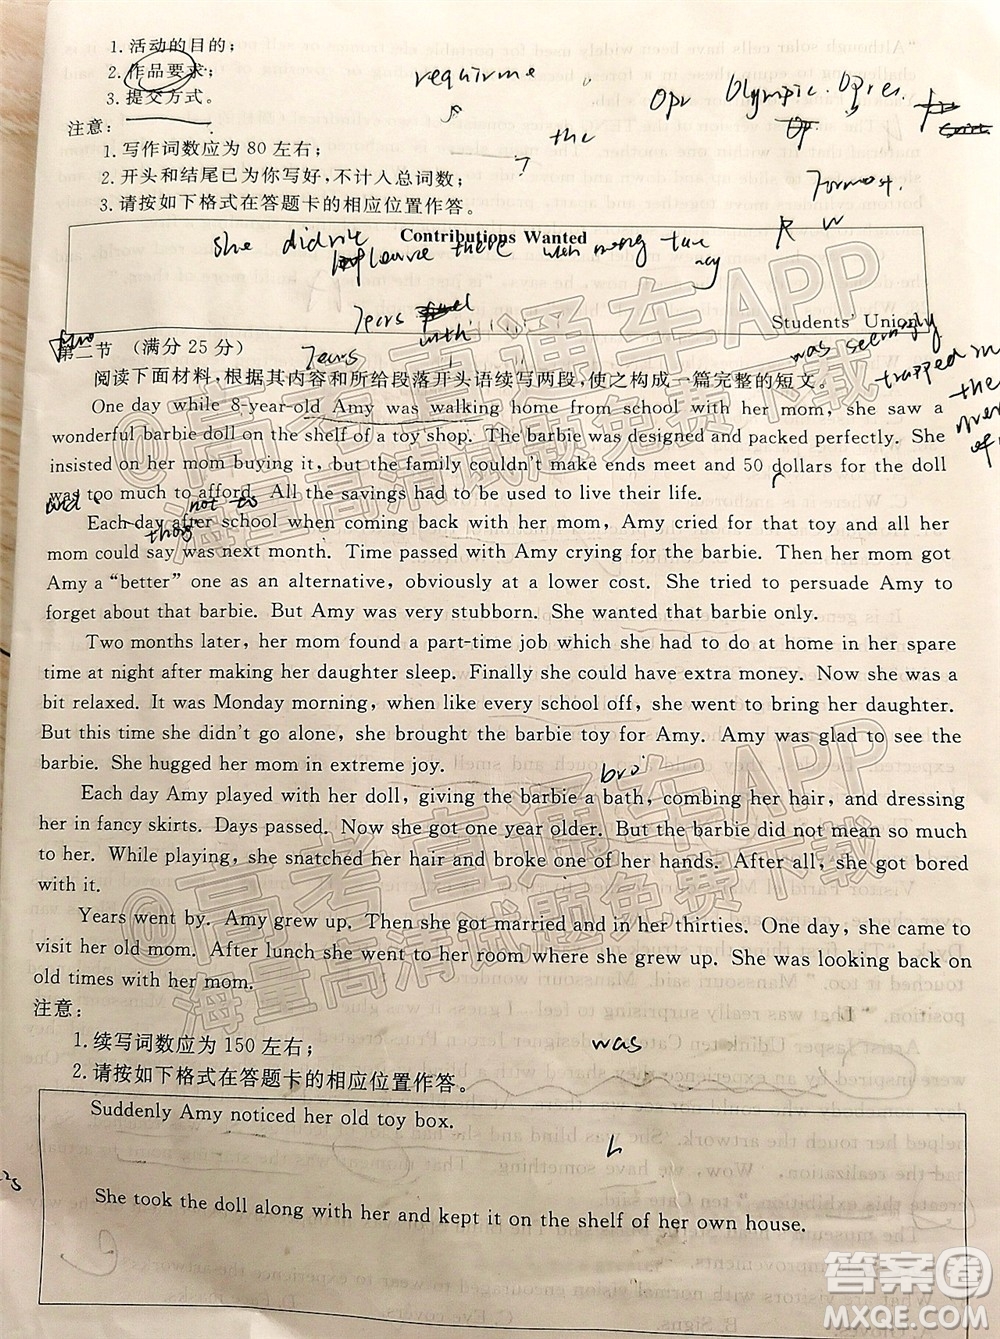 1. 活动的目的；
2. 作品要求；
3. 提交方式。
requirme
Opr Olympic. Opres.
the
注意：
1. 写作词数应为 80 左右；
2. 开头和结尾已为你写好，不计入总词数；
3. 请按如下格式在答题卡的相应位置作答。
R W
Contributions Wanted
she didn't
Students' Union
Tears
with
第二节 （满分 25 分）
Tears
was seemingly
trapped in
the
阅读下面材料，根据其内容和所给段落开头语续写两段，使之构成一篇完整的短文。
One day while 8-year-old Amy was walking home from school with her mom, she saw a
wonderful barbie doll on the shelf of a toy shop. The barbie was designed and packed perfectly. She
insisted on her mom buying it, but the family couldn't make ends meet and 50 dollars for the doll
was too much to afford. All the savings had to be used to live their life.
not to
Each day after school when coming back with her mom, Amy cried for that toy and all her
mom could say was next month. Time passed with Amy crying for the barbie. Then her mom got
Amy a "better" one as an alternative, obviously at a lower cost. She tried to persuade Amy to
forget about that barbie. But Amy was very stubborn. She wanted that barbie only.
Two months later, her mom found a part-time job which she had to do at home in her spare
time at night after making her daughter sleep. Finally she could have extra money. Now she was a
bit relaxed. It was Monday morning, when like every school off, she went to bring her daughter.
But this time she didn't go alone, she brought the barbie toy for Amy. Amy was glad to see the
barbie. She hugged her mom in extreme joy.
bro
Each day Amy played with her doll, giving the barbie a bath, combing her hair, and dressing
her in fancy skirts. Days passed. Now she got one year older. But the barbie did not mean so much
to her. While playing, she snatched her hair and broke one of her hands. After all, she got bored
with it.
Years went by. Amy grew up. Then she got married and in her thirties. One day, she came to
visit her old mom. After lunch she went to her room where she grew up. She was looking back on
old times with her mom.
注意：
1. 续写词数应为 150 左右；
was
2. 请按如下格式在答题卡的相应位置作答。
Suddenly Amy noticed her old toy box.
She took the doll along with her and kept it on the shelf of her own house.
@高考直通车APP
海量高清试题免费下载
@高考直通车APP
海量高清试题免费下载
答案圈
MXQE.COM